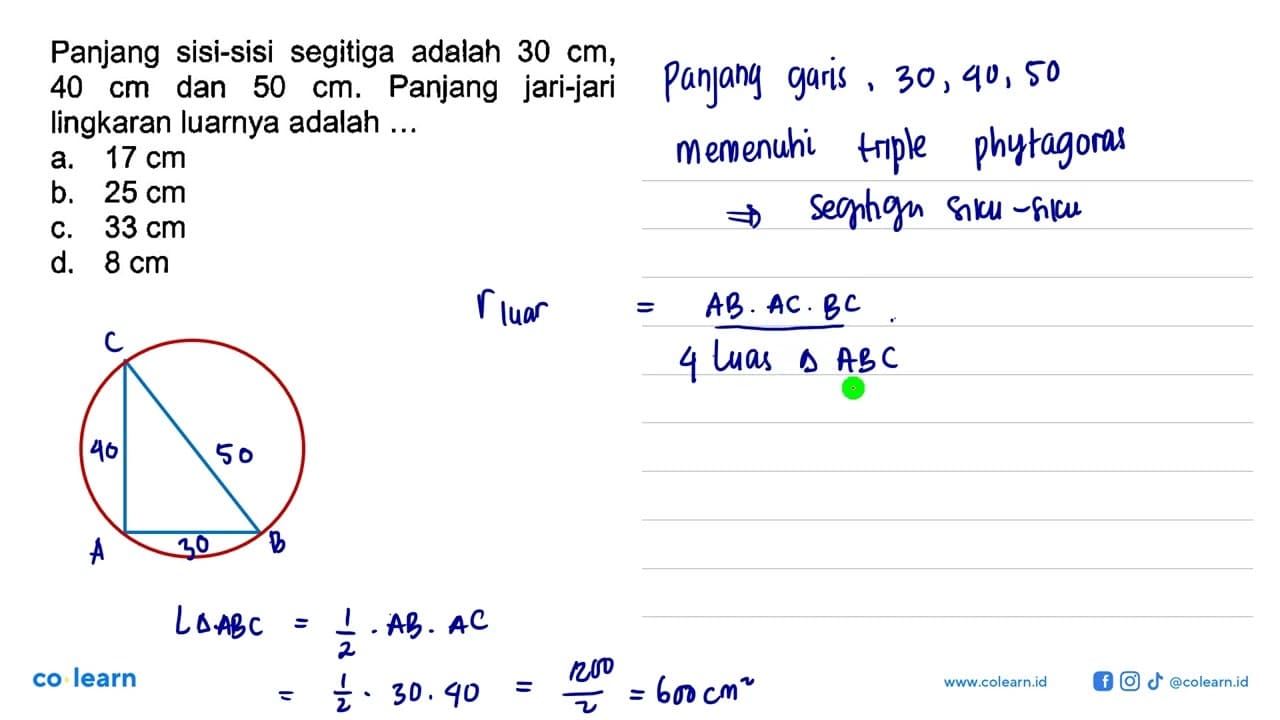 Panjang sisi-sisi segitiga adalah 30 cm,
40 cm dan 50 cm. Panjang jari-jari
lingkaran luarnya adalah ...
a. 17 cm
b. 25 cm
c. 33 cm
d. 8 cm
Panjang garis, 30, 40, 50
memenuhi triple phytagoras
⇒ segitiga siku-siku
r luar = AB . AC . BC
4 luas Δ ABC
C
40
50
A
30
B
LΔABC = 1/2 . AB . AC
= 1/2 . 30 . 40 = 1200/2 = 600 cm²
co learn
www.colearn.id
@colearn.id